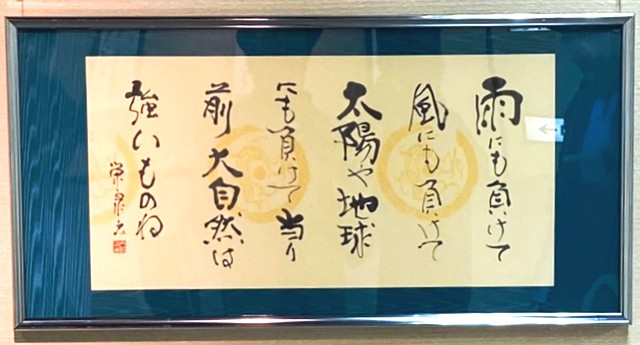 雨にも負けて
風にも負けて
太陽や地球
にも負けて当り
前大自然は
強いものね